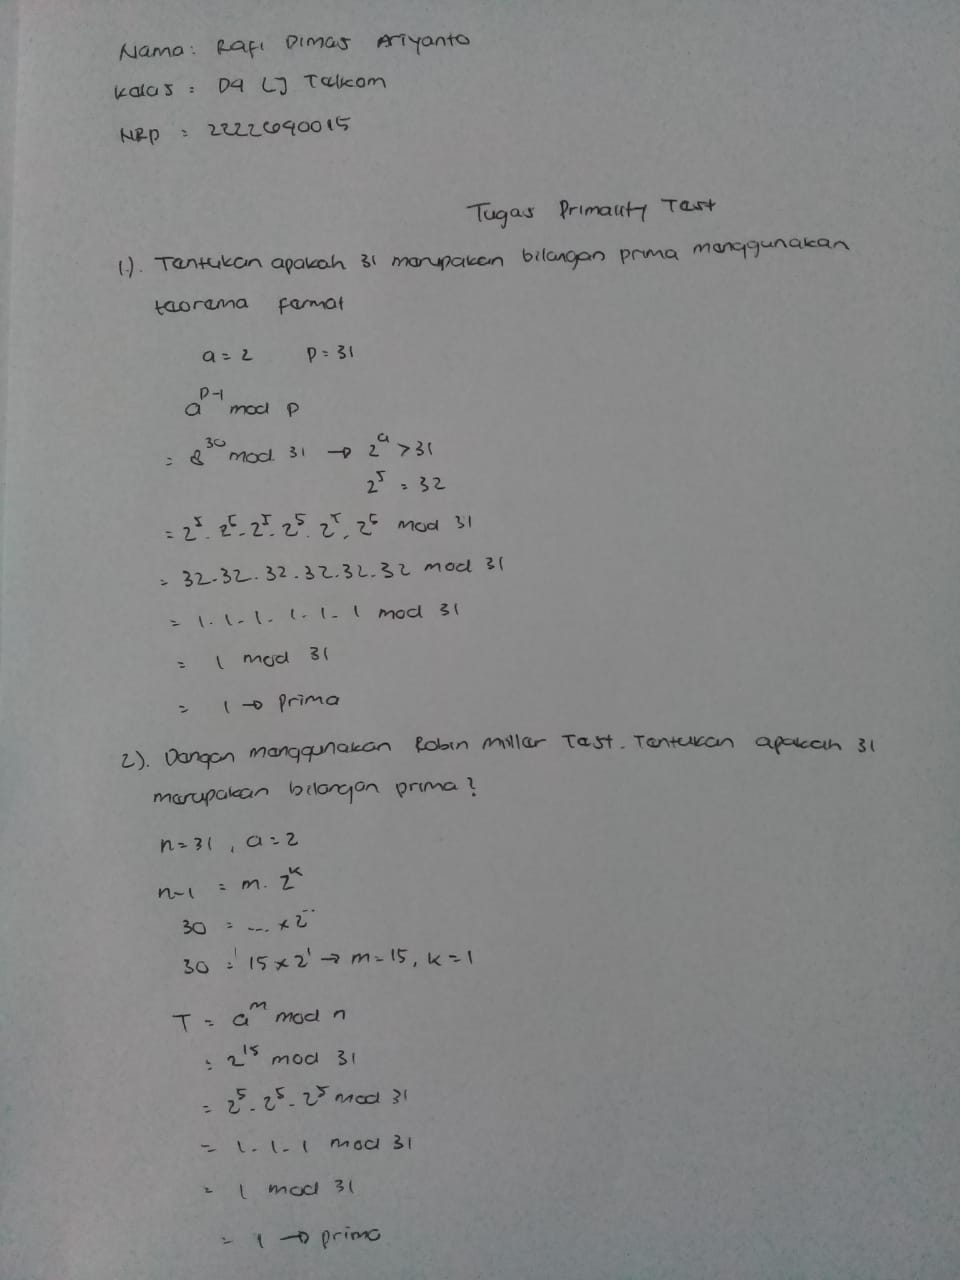 Nama: Rafi Dimas Ariyanto
Kelas : D4 LJ Telkom
NRP : 2222640015
Tugas Primality Test
1). Tentukan apakah 31 merupakan bilangan prima menggunakan
teorema fermat
a = 2 p = 31
a^p-1 mod p
= 2^30 mod 31 → 2^a > 31
2^5 = 32
= 2^5 . 2^5 . 2^5 . 2^5 . 2^5 . 2^5 mod 31
= 32.32.32.32.32.32 mod 31
= 1.1.1.1.1.1 mod 31
= 1 mod 31
= 1 → prima
2). Dengan menggunakan Robin Miller Test. Tentukan apakah 31
merupakan bilangan prima?
n = 31, a = 2
n-1 = m. 2^k
30 = ... x 2^..
30 = 15 x 2^1 → m = 15, k = 1
T = a^m mod n
= 2^15 mod 31
= 2^5 . 2^5 . 2^5 mod 31
= 1.1.1 mod 31
= 1 mod 31
= 1 → prima